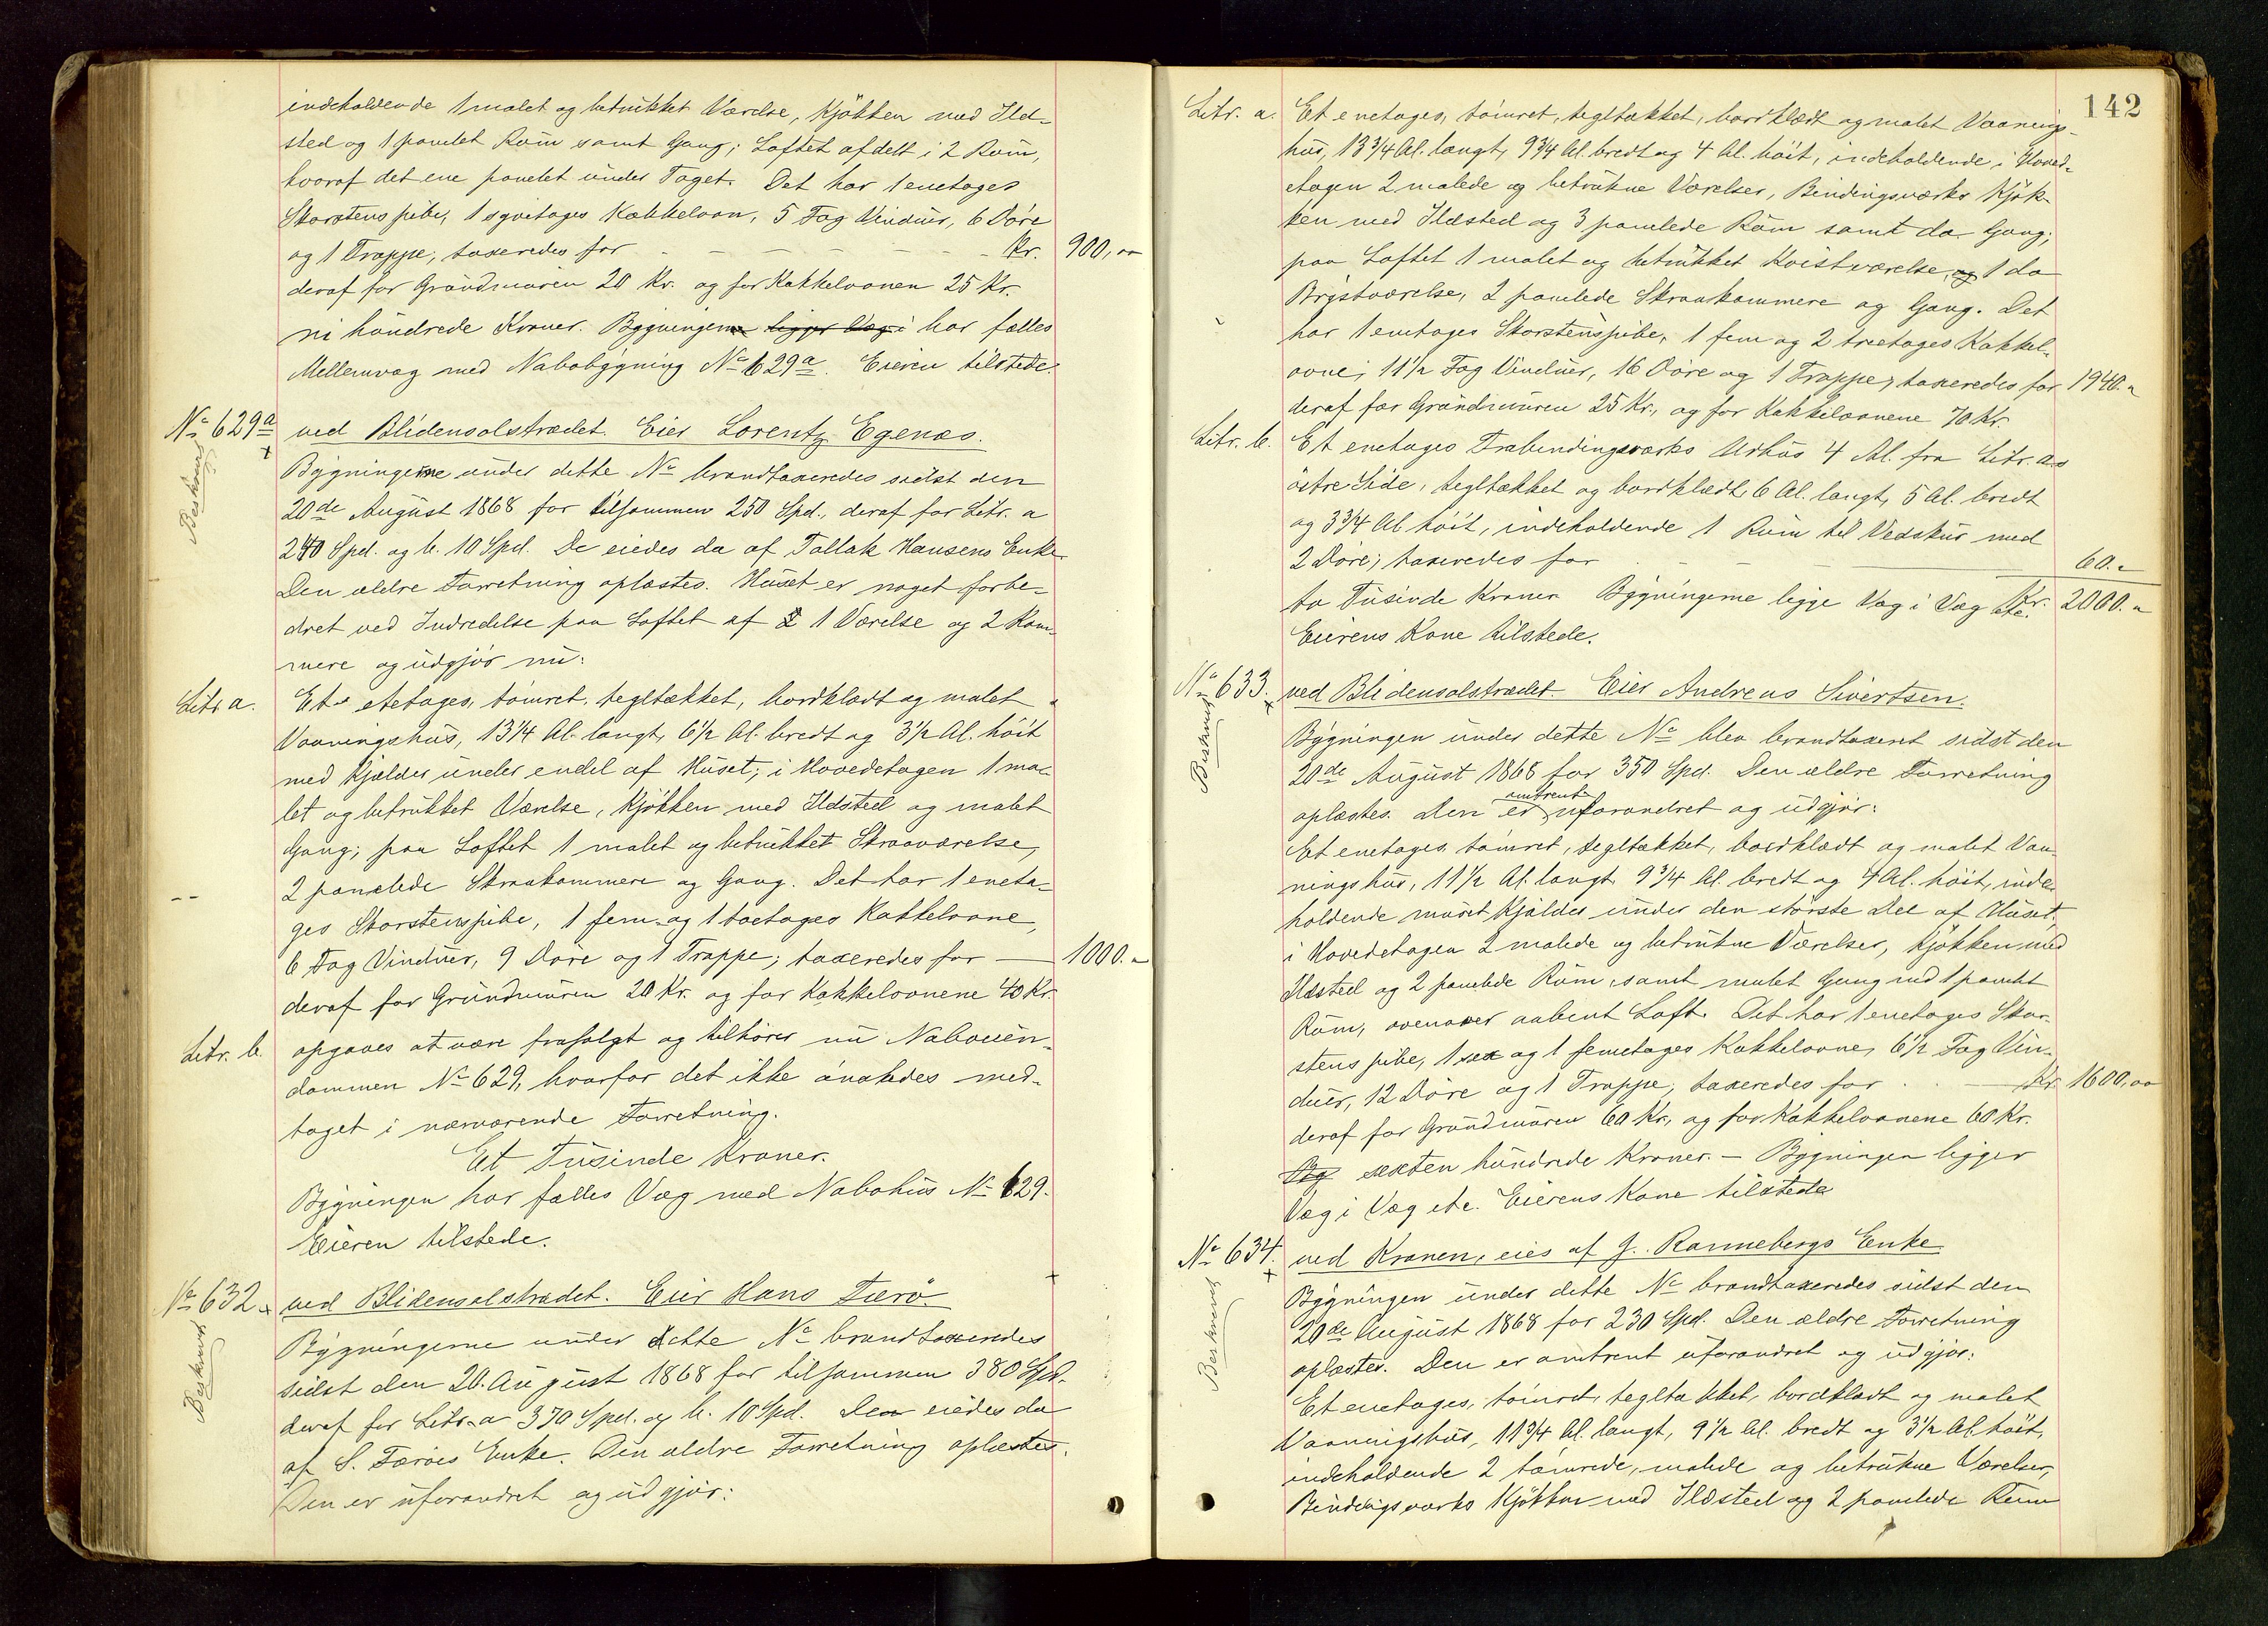 indeholdende 1 malet og betrukket Værelse, Kjökken med Ild-
sted og 1 panelet Rum samt Gang; Loftet afdelt i 2 Rum,
hvoraf det ene panelet under Taget. Det har 1 enetages
Skorstenspibe, 1 Kakkelovn, 5 Fag Vinduer, 6 Döre
og 1 Trappe, taxeredes for - - - - - - Kr. 900,00
deraf for Grundmuren 20 Kr. og for Kakkelovnen 25 Kr.
ni hundrede Kroner. Bygningen ligger Væg i har fælles
Mellemvæg med Nabobygning No 629a. Eieren tilstede.
No 629a ved Blidensolstrædet. Eier Lorentz Egenæs.
Beskrevet
Bygningerne under dette No brandtaxeredes sidst den
20de August 1868 for tilsammen 250 Spd., deraf for Litr. a
240 Spd. og b. 10 Spd. De eiedes da af Tollak Hansens Enke.
Den ældre Forretning oplæstes. Huset er noget forbe-
dret ved Indredelse paa Loftet af 2 1 Værelse og 2 Kam-
mere og udgjör nu:
Litr. a. Et etetages, tömret, tegltækket, bordklædt og malet
Vaaningshus, 13 1/4 Al. langt, 6 1/2 Al. bredt og 3 1/2 Al. höit
med Kjælder under endel af Huset; i Hovedetagen 1 ma-
let og betrukket Værelse, Kjökken med Ildsted og malet
Gang; paa Loftet 1 malet og betrukket Skraaværelse,
2 panelede Skraakammere og Gang. Det har 1 eneta-
ges Skorstenspibe, 1 fem- og 1 toetages Kakkelovne,
6 Fag Vinduer, 9 Döre og 1 Trappe; taxeredes for — 1000.„
deraf for Grundmuren 20 Kr. og for Kakkelovnene 40 Kr.
Litr. b. opgaves at være frasolgt og tilhörer nu Naboeien-
dommen No 629, hvorfor det ikke önskedes med-
taget i nærværende Forretning.
Et Tusinde Kroner.
Bygningen har fælles Væg med Nabohus No 629.
Eieren tilstede.
No 632. ved Blidensolstrædet. Eier Hans Færö.
Beskrevet
Bygningerne under dette No brandtaxeredes
sidst den 20. August 1868 for tilsammen 380 Spd.
deraf for Litr. a 370 Spd. og b. 10 Spd. Den eiedes da
af S. Færöes Enke. Den ældre Forretning oplæstes.
Den er uforandret og udgjör:
142
Litr. a. Et enetages, tömret, tegltækket, bordklædt og malet Vaanings-
hus, 13 3/4 Al. langt, 9 3/4 Al. bredt og 4 Al. höit, indeholdende i Hoved-
etagen 2 malede og betrukne Værelser, Bindingsværks Kjök-
ken med Ildsted og 3 panelede Rum samt do. Gang;
paa Loftet 1 malet og betrukket Kvistværelse, og 1 do
Brystværelse, 2 panelede Skraakammere og Gang. Det
har 1 enetages Skorstenspibe, 1 fem og 2 treetages Kakkel-
ovne, 11 1/2 Fag Vinduer, 16 Döre og 1 Trappe, taxeredes for 1940.„
deraf for Grundmuren 25 Kr., og for Kakkelovnene 70 Kr.
Litr. b. Et enetages Træbindingsværks Udhus 4 Al. fra Litr. a.s
östre Side, tegltækket og bordklædt, 6 Al. langt, 5 Al. bredt
og 3 3/4 Al. höit, indeholdende 1 Rum til Vedskur med
2 Döre; taxeredes for - - — 60.„
to Tusinde Kroner Bygningerne ligge Væg i Væg etc. Kr. 2000.„
Eierens Kone tilstede.
No 633. ved Blidensolstrædet. Eier Andreas Sivertsen.
Beskrevet
Bygningen under dette No blev brandtaxeret sidst den
20de August 1868 for 350 Spd. Den ældre Forretning
oplæstes. Den er omtrent uforandret og udgjör:
Et enetages, tömret, tegltækket, bordklædt og malet Vaa-
ningshus, 11 1/2 Al. langt, 9 3/4 Al. bredt og 4 Al. höit, inde-
holdende muret Kjælder under den störste Del af Huset.
i Hovedetagen 2 malede og betrukne Værelser, Kjökken med
Ildsted og 2 panelede Rum, samt malet Gang med 1 panelet
Rum, ovenover aabent Loft. Det har 1 enetages Skor-
stenspibe, 1 sex og 1 femetages Kakkelovne, 6 1/2 Fag Vin-
duer, 12 Döre og 1 Trappe, taxeredes for - — Kr. 1600,00
deraf for Grundmuren 60 Kr., og for Kakkelovnene 60 Kr.
Byg sexten hundrede Kroner. — Bygningen ligger
Væg i Væg etc. Eierens Kone tilstede
No 634. ved Kranen, eies af J. Rannebergs Enke
Beskrevet
Bygningen under dette No brandtaxeredes sidst den
20de August 1868 for 230 Spd. Den ældre Forretning
oplæstes. Den er omtrent uforandret og udgjör:
Et enetages, tömret, tegltækket, bordklædt og malet
Vaaningshus, 11 3/4 Al. langt, 9 1/2 Al. bredt og 3 1/2 Al. höit,
indeholdende 2 tömrede, malede og betrukne Værelser,
Bindingsværks Kjökken med Ildsted og 2 panelede Rum